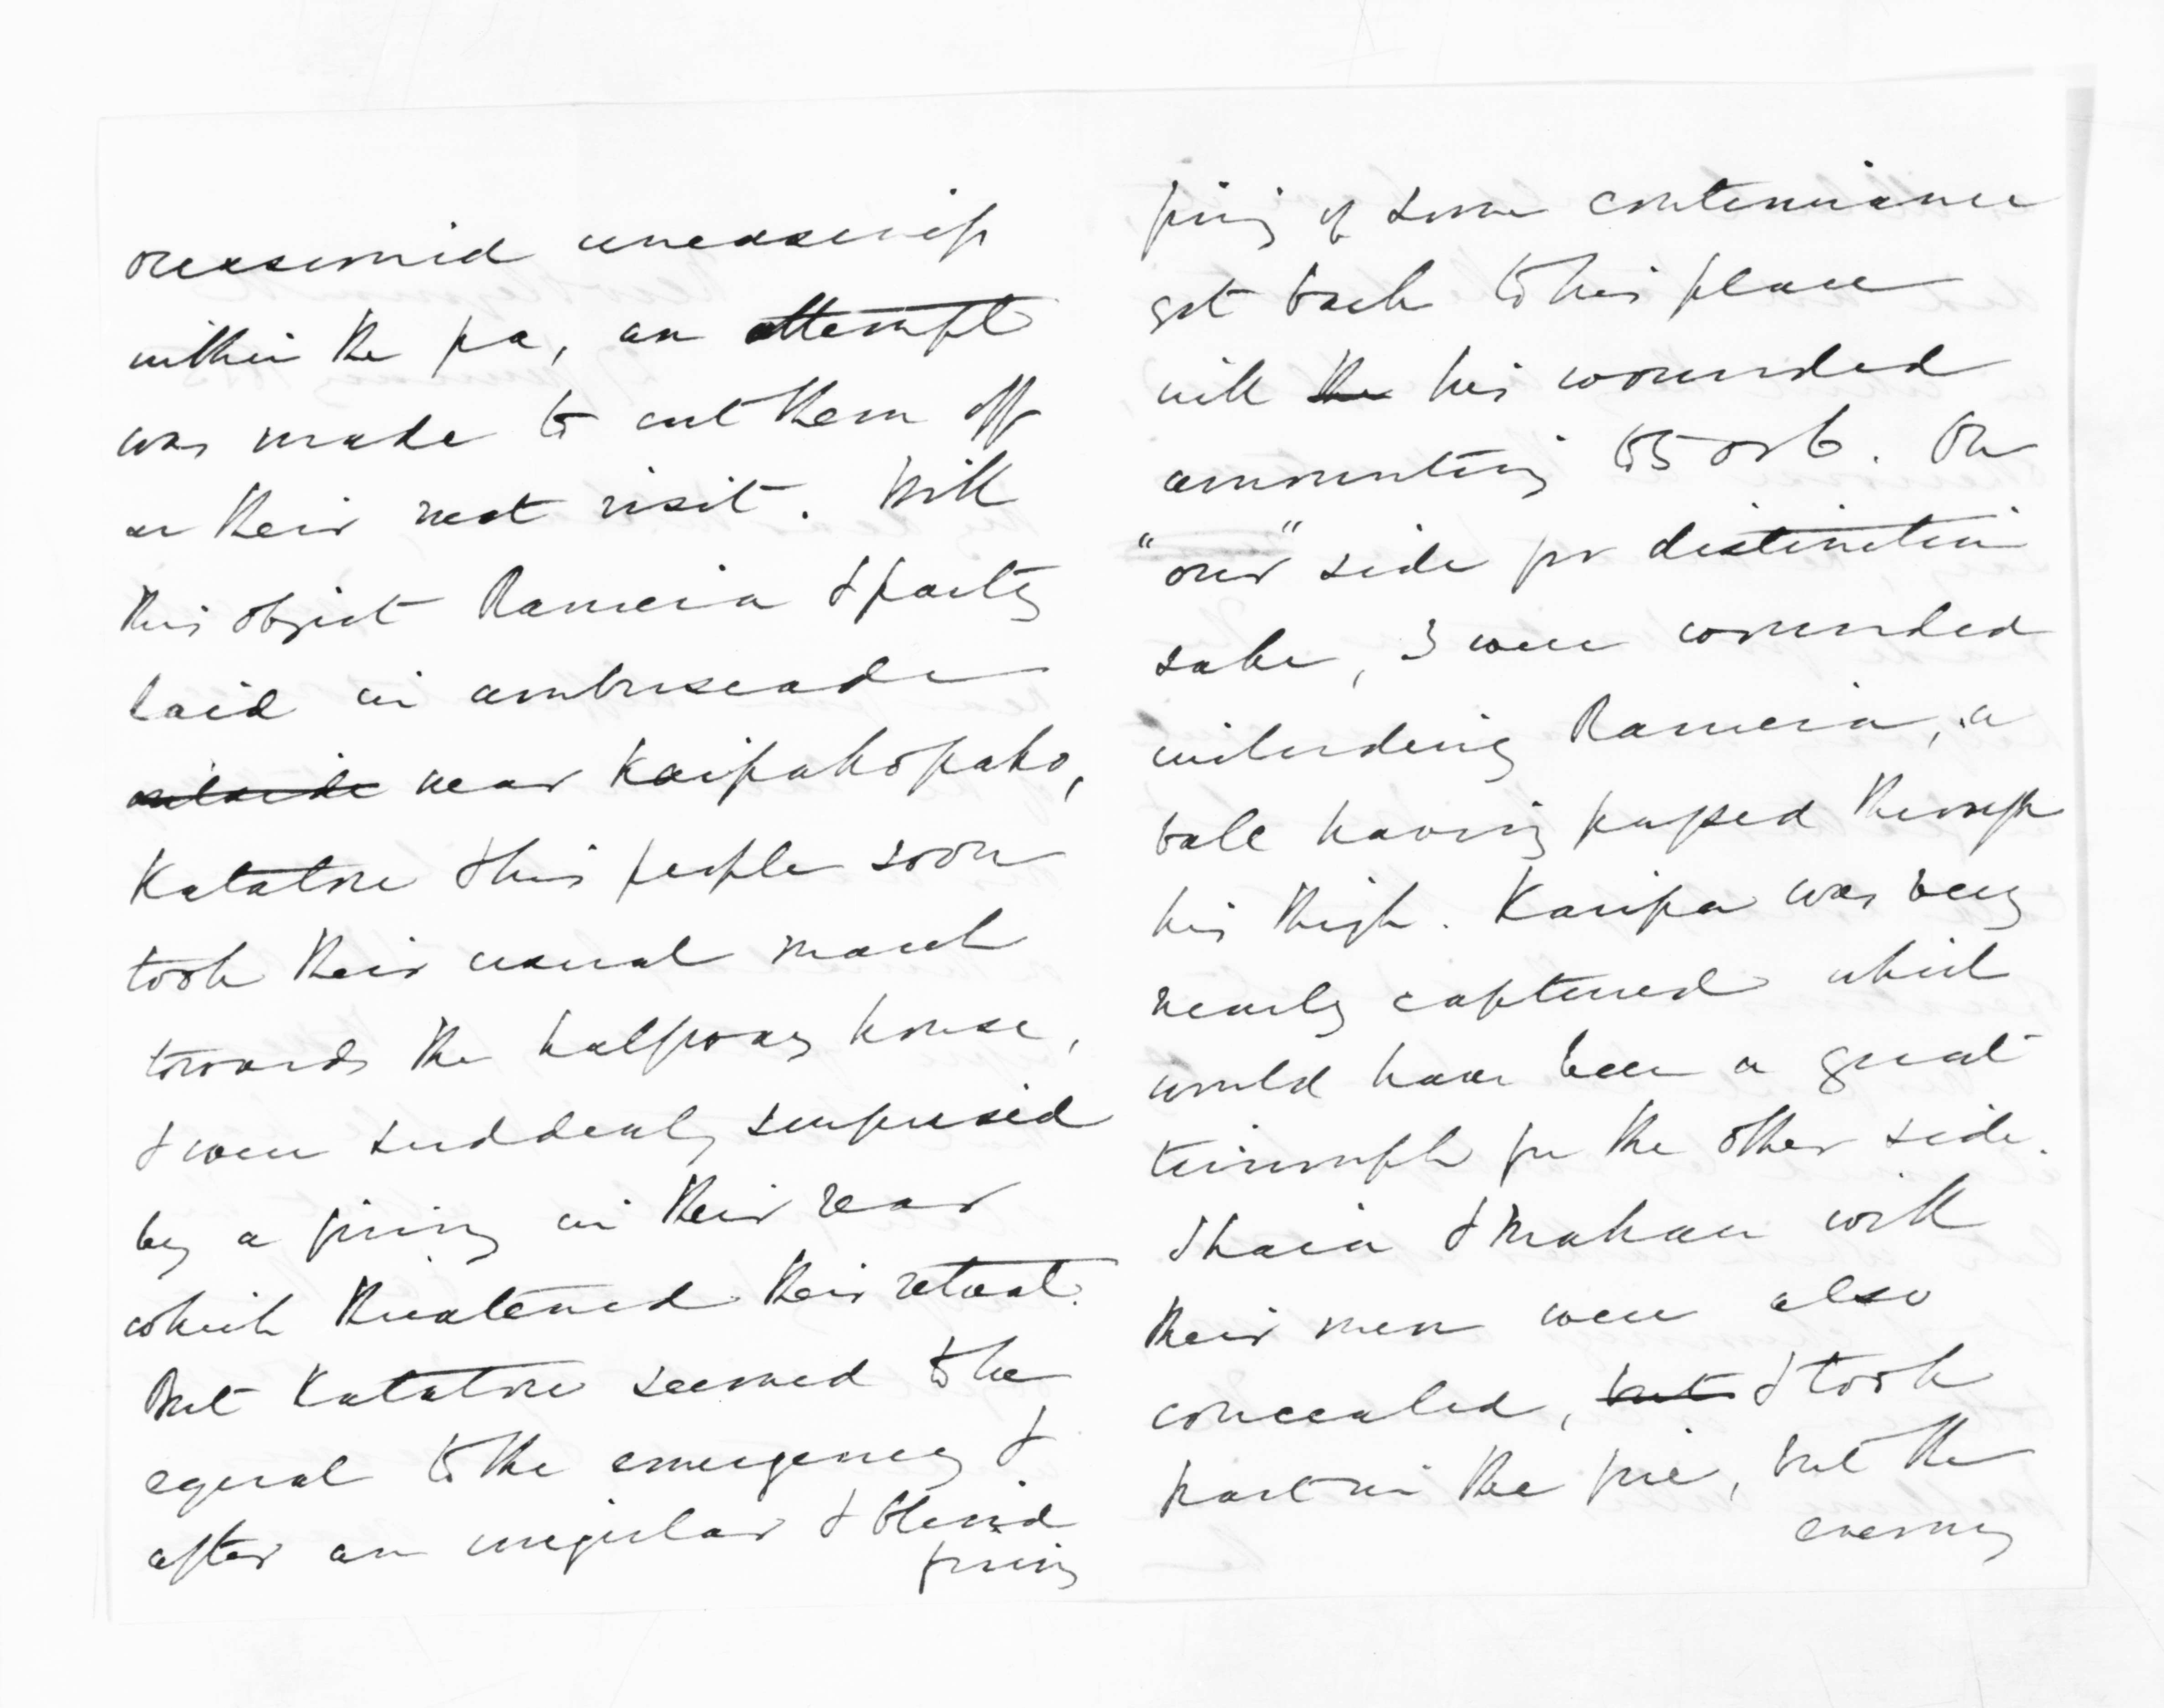 occasioned uneasiness
within the pa, an attempt
was made to cut them off
on their next visit. With
this object Rameira & party
laid in ambuscade
near Kaipakopako,
Katatore & his people soon
took their usual march
towards the halfway house,
& were suddenly surprised
by a firing in their rear
which threatened their retreat.
But Katatore seemed to be
equal to the emergency &
after an irregular & blind
firing
firing of some continuance
got back to his place
with the his wounded
amounting to 5 or 6. On
"our" side for distinction
sake, 3 were wounded
including Rameira, a
ball having passed through
his thigh. Karipa was very
nearly captured which
would have been a great
triumph for the other side.
Ihaia & Mahau with
their men were also
concealed, but & took
part in the fire, but the
enemy